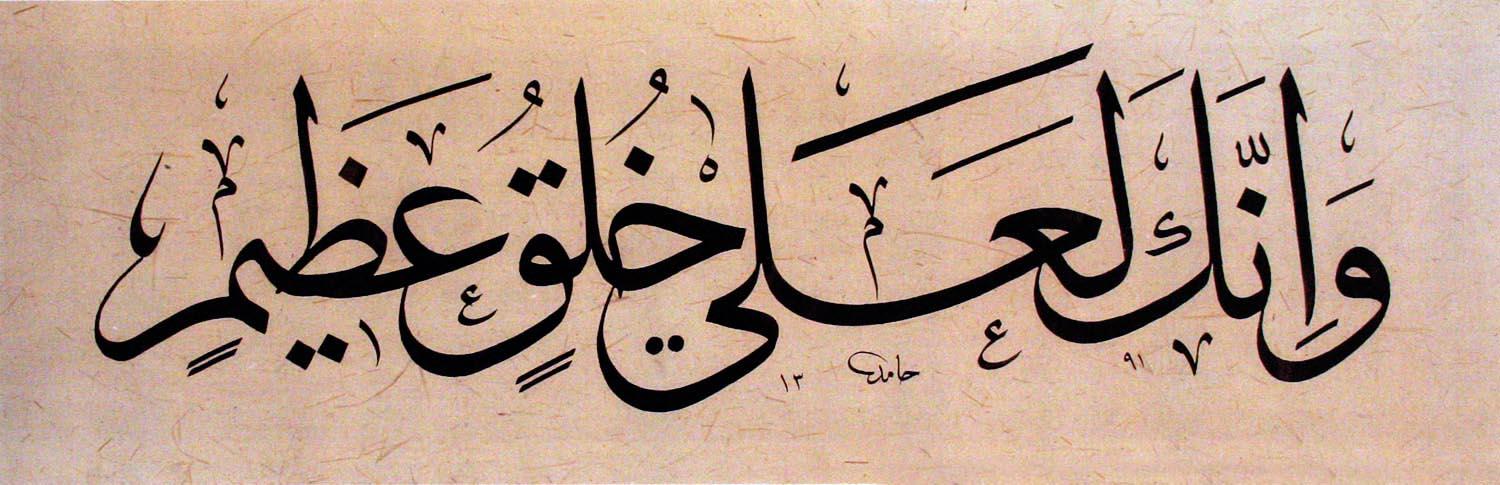 وَإِنَّكَ لَعَلَى خُلُقٍ عَظِيمٍ
حامد ١٣ ٩١